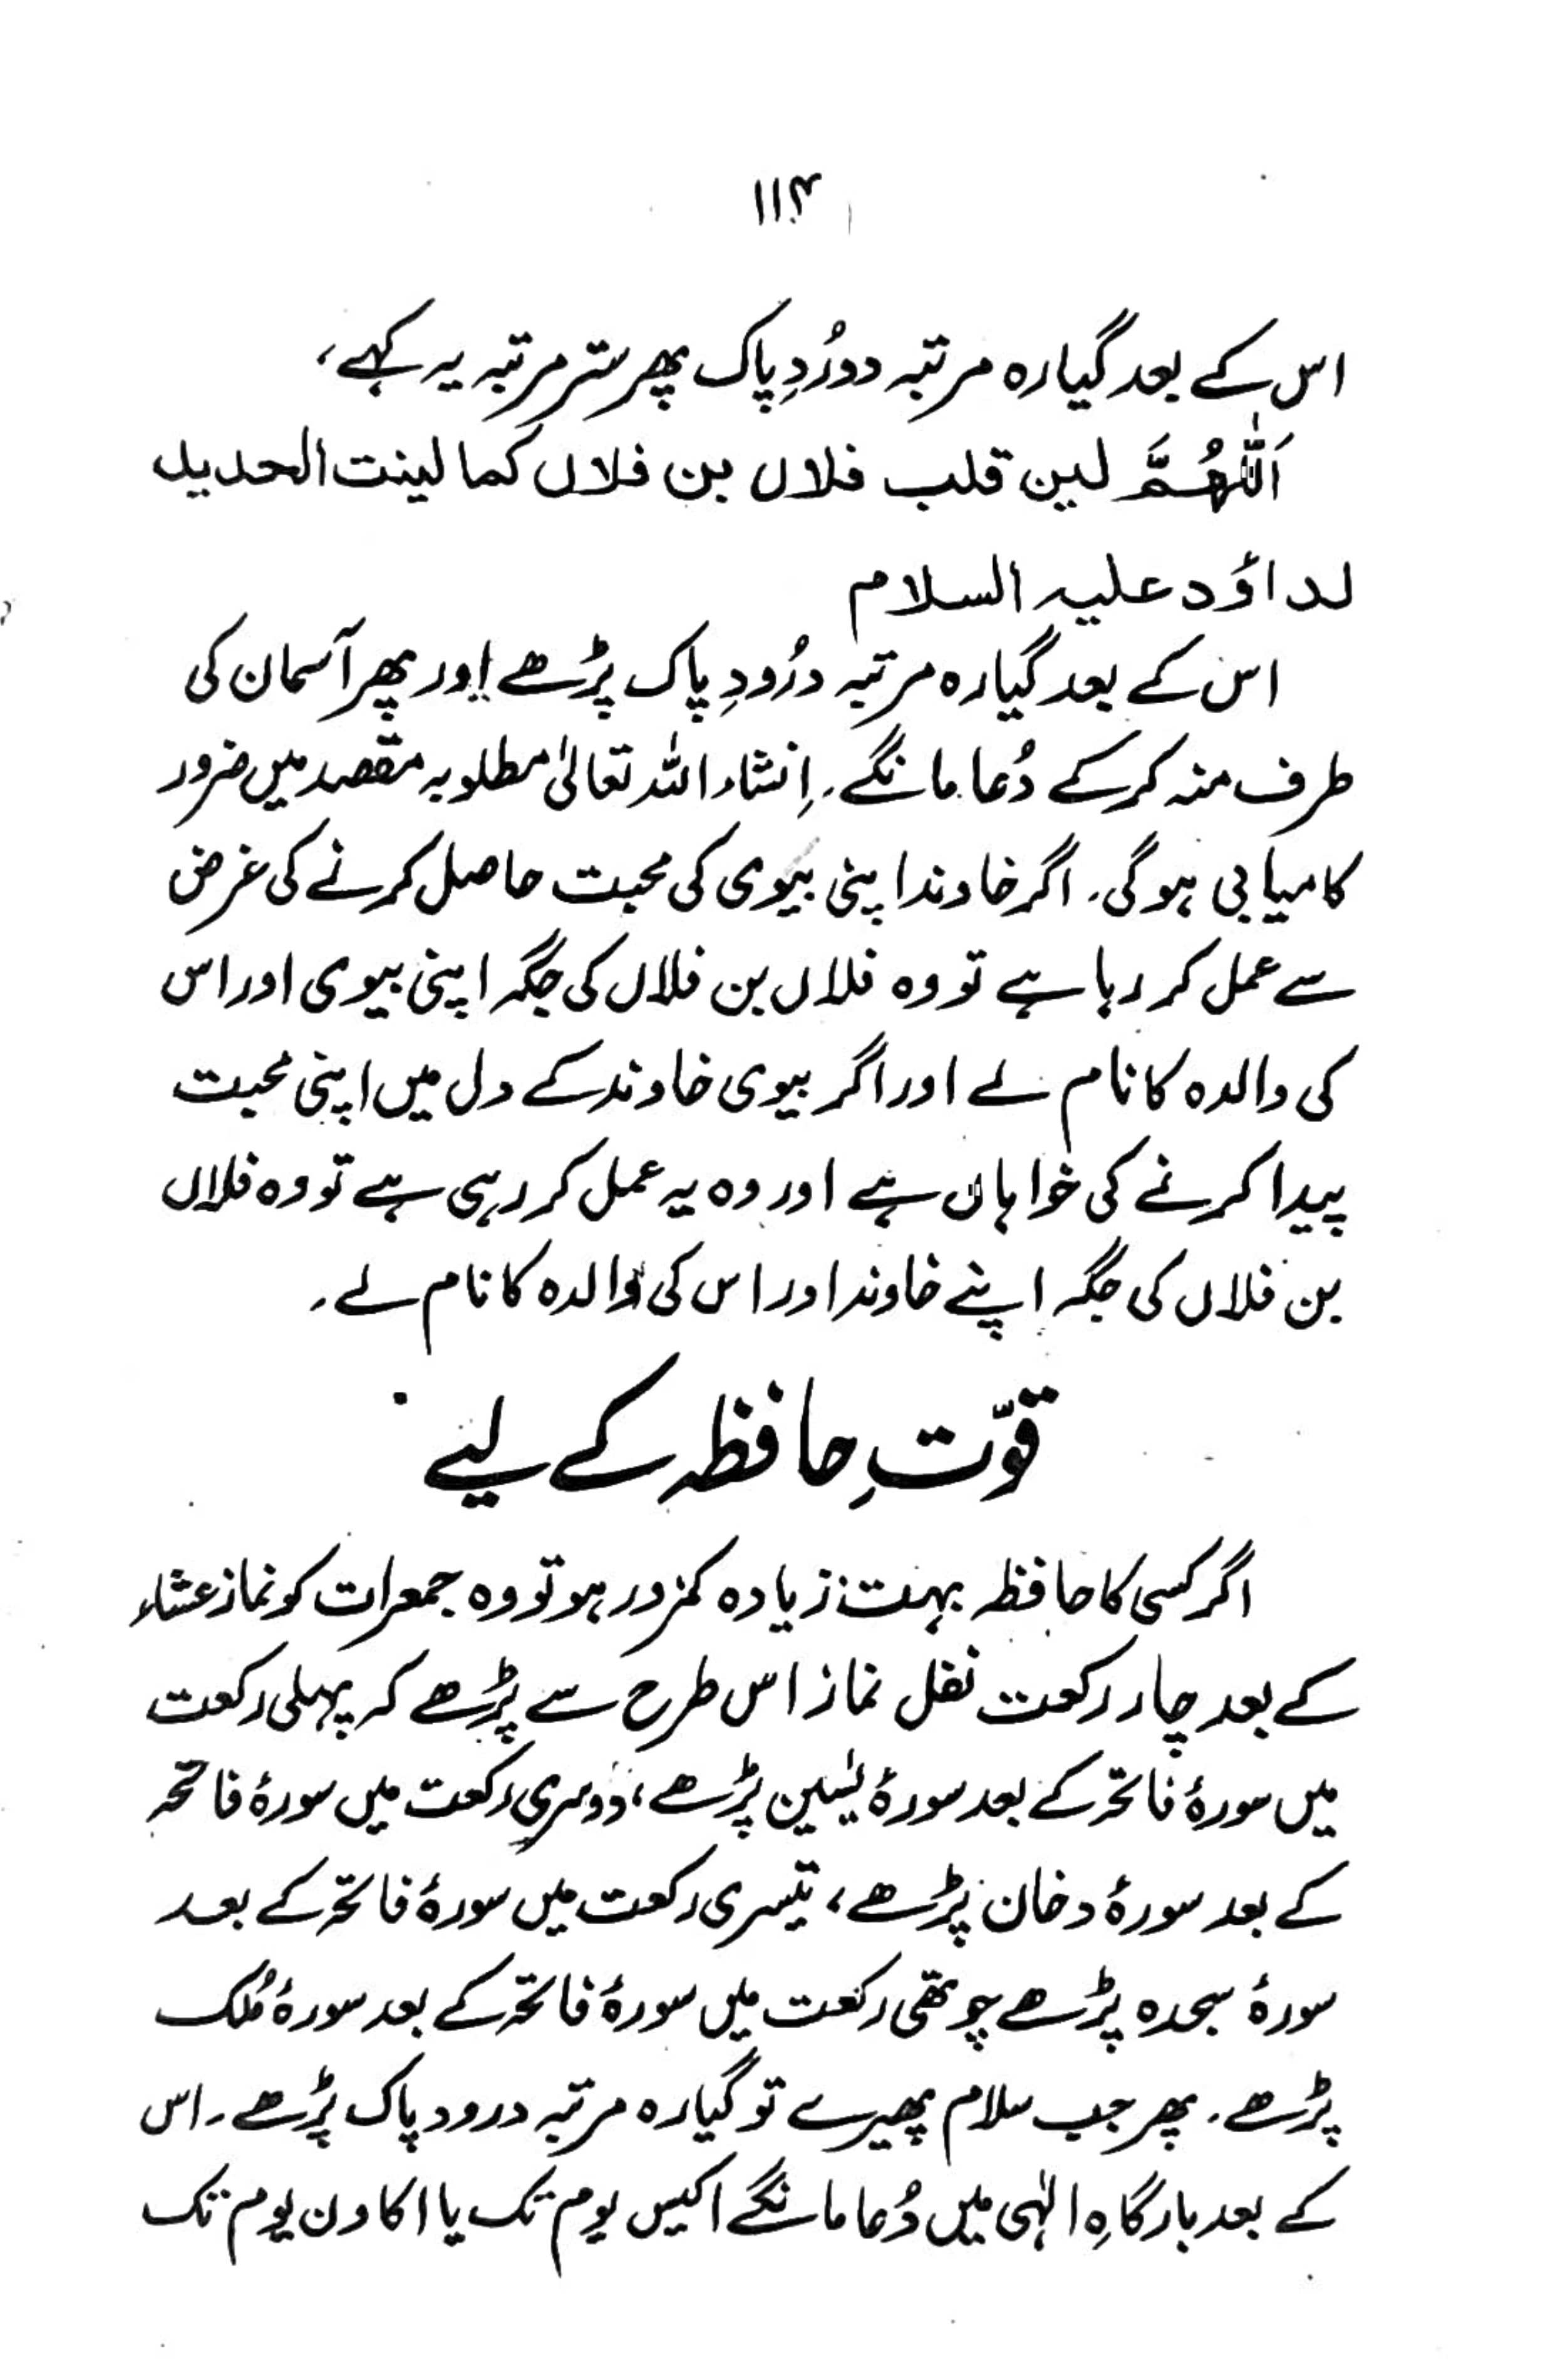 ۱۱۴
اس کے بعد گیارہ مرتبہ دورُدِ پاک پھر ستر مرتبہ یہ کہے،
اَللّٰھُمَّ لین قلب فلاں بن فلاں کما لینت الحدید
لداؤد علیہ السلام
اس کے بعد گیارہ مرتبہ درُودِ پاک پڑھے اور پھر آسمان کی
طرف منہ کرکے دُعا مانگے۔ اِنشاء اللہ تعالیٰ مطلوبہ مقصد میں ضرور
کامیابی ہوگی۔ اگر خاوند اپنی بیوی کی محبت حاصل کرنے کی غرض
سے عمل کر رہا ہے تو وہ فلاں بن فلاں کی جگہ اپنی بیوی اور اس
کی والدہ کا نام لے اور اگر بیوی خاوند کے دل میں اپنی محبت
پیدا کرنے کی خواہاں ہے اور وہ یہ عمل کر رہی ہے تو وہ فلاں
بن فلاں کی جگہ اپنے خاوند اور اس کی والدہ کا نام لے۔
قوّتِ حافظہ کے لیے
اگر کسی کا حافظہ بہت زیادہ کمزور ہو تو وہ جمعرات کو نماز عشاء
کے بعد چار رکعت نفل نماز اس طرح سے پڑھے کہ پہلی رکعت
میں سورۂ فاتحہ کے بعد سورۂ یٰسین پڑھے، دوسری رکعت میں سورۂ فاتحہ
کے بعد سورۂ دخان پڑھے، تیسری رکعت میں سورۂ فاتحہ کے بعد
سورۂ سجدہ پڑھے چوتھی رکعت میں سورۂ فاتحہ کے بعد سورۂ مُلک
پڑھے۔ پھر جب سلام پھیرے تو گیارہ مرتبہ درود پاک پڑھے۔ اس
کے بعد بارگاہِ الٰہی میں دُعا مانگے اکیس یوم تک یا اکاون یوم تک